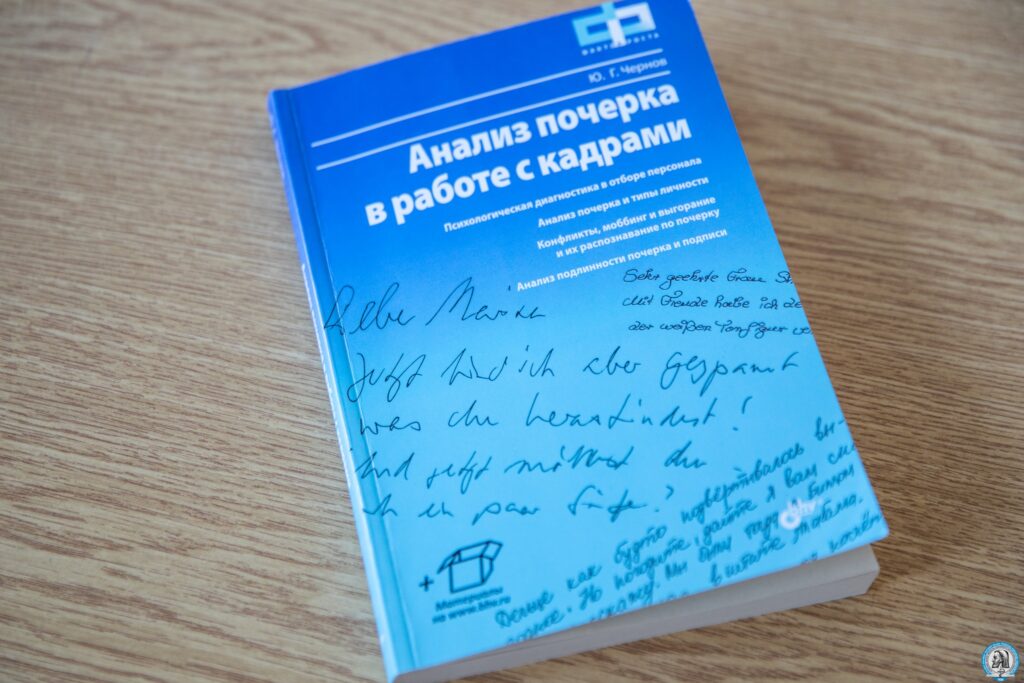 ФАКТОР РОСТА
Ю. Г. Чернов
Анализ почерка
в работе с кадрами
Психологическая диагностика в отборе персонала
Анализ почерка и типы личности
Конфликты, моббинг и выгорание
и их распознавание по почерку
Анализ подлинности почерка и подписи
Sehr geehrte Frau
Mit Freude habe ich
der weißen
Liebe
Jetzt bin ich aber gespannt
was du herausfindest!
Und jetzt möchtest du
ein paar Sätze?
+
Материалы
на www.bhv.ru
bhv
Дальше как будто подвёртывалось вы-
Но погодите, дайте я вам
Мы были тогда в
в штате